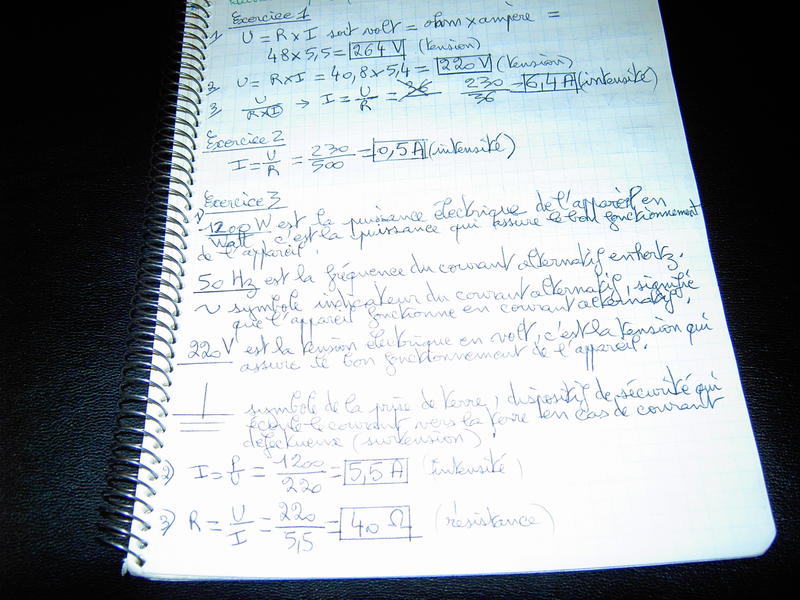 Exercice 1
1 U = R x I soit volt = ohm x ampère =
48 x 5,5 = 264 V (tension)
2, U = R x I = 40,8 x 5,4 = 220 V (tension)
3, U/R x I → I = U/R = 230/36 = 6,4 A (intensité)
Exercice 2
I = U/R = 230/500 = 0,5 A (intensité)
Exercice 3
1, 1200 W est la puissance électrique de l'appareil en
Watt c'est la puissance qui assure le bon fonctionnement
de l'appareil.
50 Hz est la fréquence du courant alternatif en hertz.
~ symbole indicateur du courant alternatif, signifie
que l'appareil fonctionne en courant alternatif.
220 V est la tension électrique en volt, c'est la tension qui
assure le bon fonctionnement de l'appareil.
symbole de la prise de terre, dispositif de sécurité qui
le courant vers la terre en cas de courant
défectueux (surtension).
2) I = P/U = 1200/220 = 5,5 A (intensité)
3) R = U/I = 220/5,5 = 40 Ω (résistance)